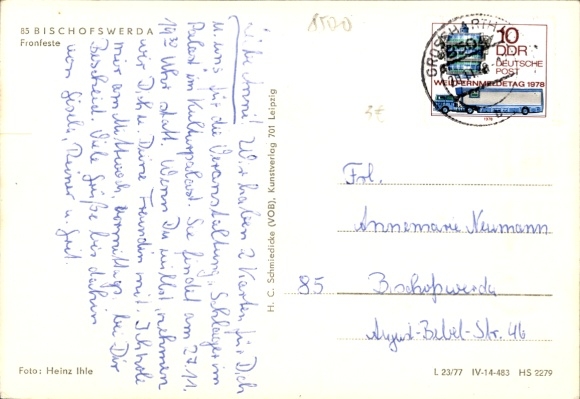 85 BISCHOFSWERDA
Fronfeste
8500
Liebe Anne! Wir haben 2 Karten für Dich
u. uns für die Veranstaltung, Schlager im
Palast im Kulturpalast. Sie findet am 27.11.
19³⁰ Uhr statt. Wenn Du willst, nehmen
wir Dich u. Deine Freundin mit. Ich hole
mir am Mittwoch, vormittags, bei Dir
Bescheid. Viele Grüße bis dahin
von Gisela, Reiner u. Grit.
H. C. Schmiedicke (VOB), Kunstverlag 701 Leipzig
10
DDR
DEUTSCHE
POST
WELTFERNMELDETAG 1978
1978
GROSSHARTHAU
3€
Frl.
Annemarie Neumann
85 Bischofswerda
August-Bebel-Str. 46
Foto: Heinz Ihle
L 23/77 IV-14-483 HS 2279